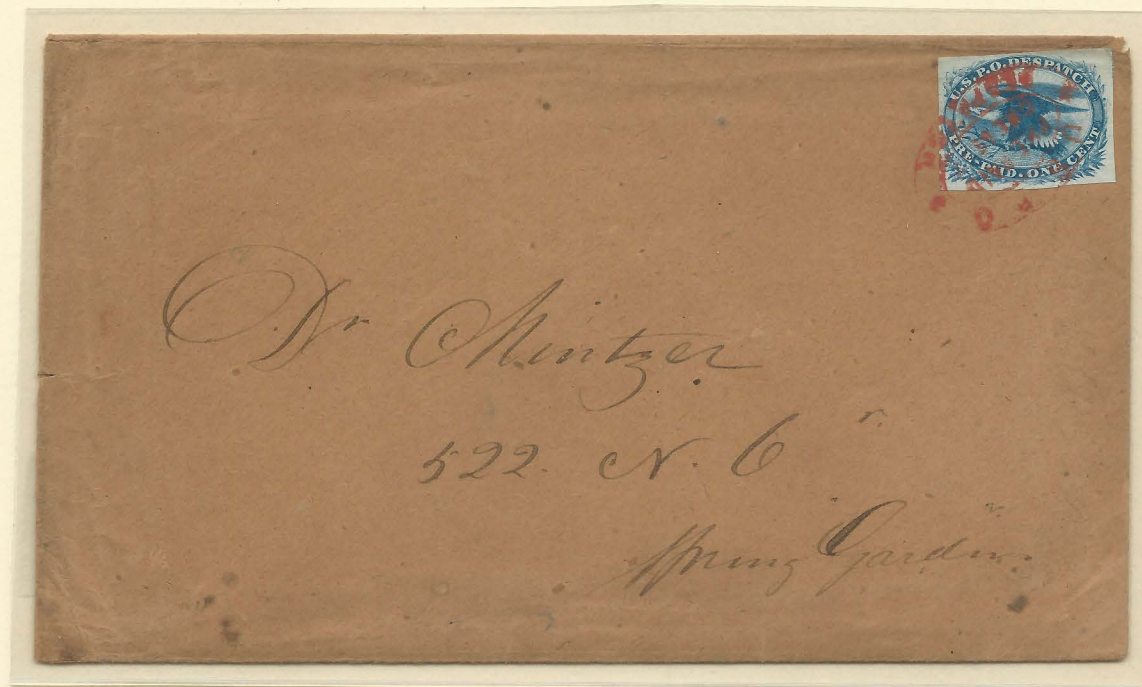 U.S.P.O. DESPATCH
PRE-PAID. ONE CENT
Dr Mintzer
522. N. 6
Spring Garden